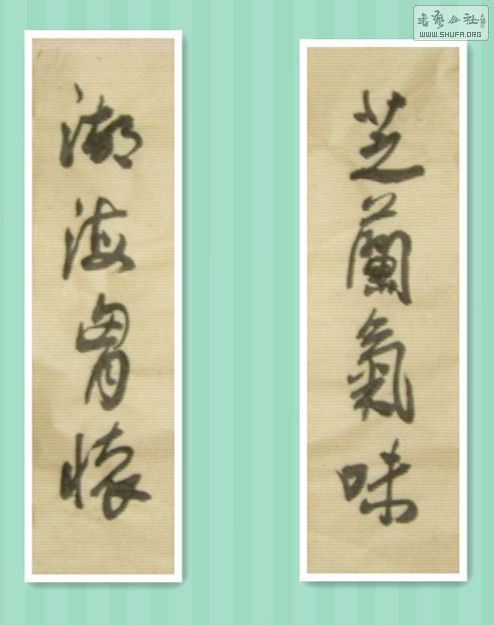 芝蘭氣味
湖海胷懷
書藝公社
WWW.SHUFA.ORG